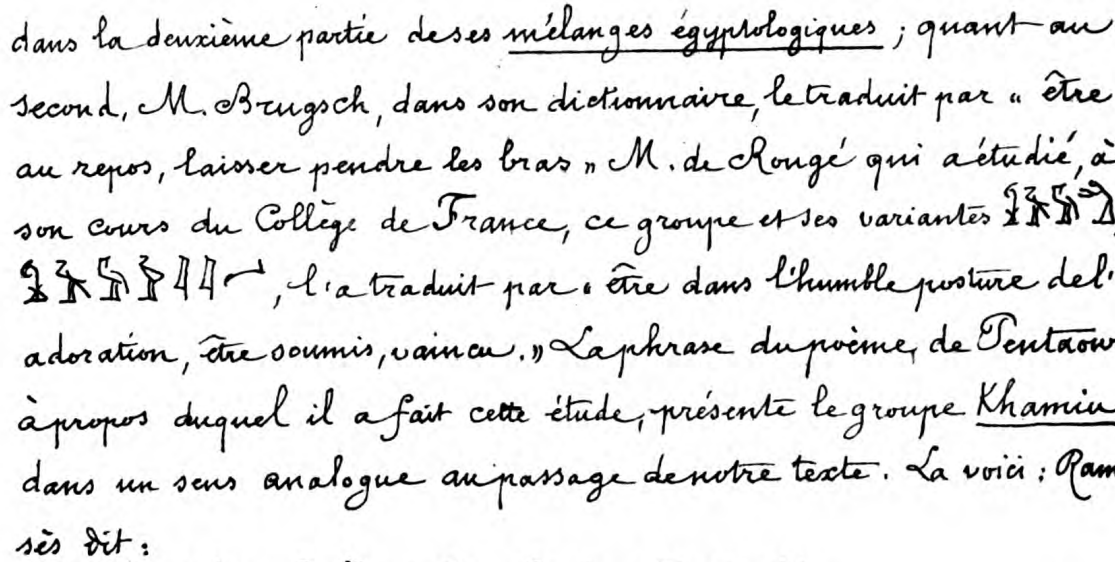 dans la deuxième partie de ses mélanges égyptologiques ; quant au
second, M. Brugsch, dans son dictionnaire, le traduit par « être
au repos, laisser pendre les bras » M. de Rougé qui a étudié, à
son cours du Collège de France, ce groupe et ses variantes
, l'a traduit par « être dans l'humble posture de l'
adoration, être soumis, vaincu. » La phrase du poème, de Pentaour
à propos duquel il a fait cette étude, présente le groupe Khamiu
dans un sens analogue au passage de notre texte. La voici : Ram
sès dit :